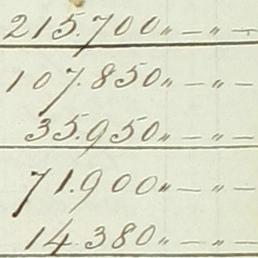 215.700 〃 — 〃 —
107.850 〃 — 〃 —
35.950 〃 — 〃 —
71.900 〃 — 〃 —
14.380 〃 — 〃 —